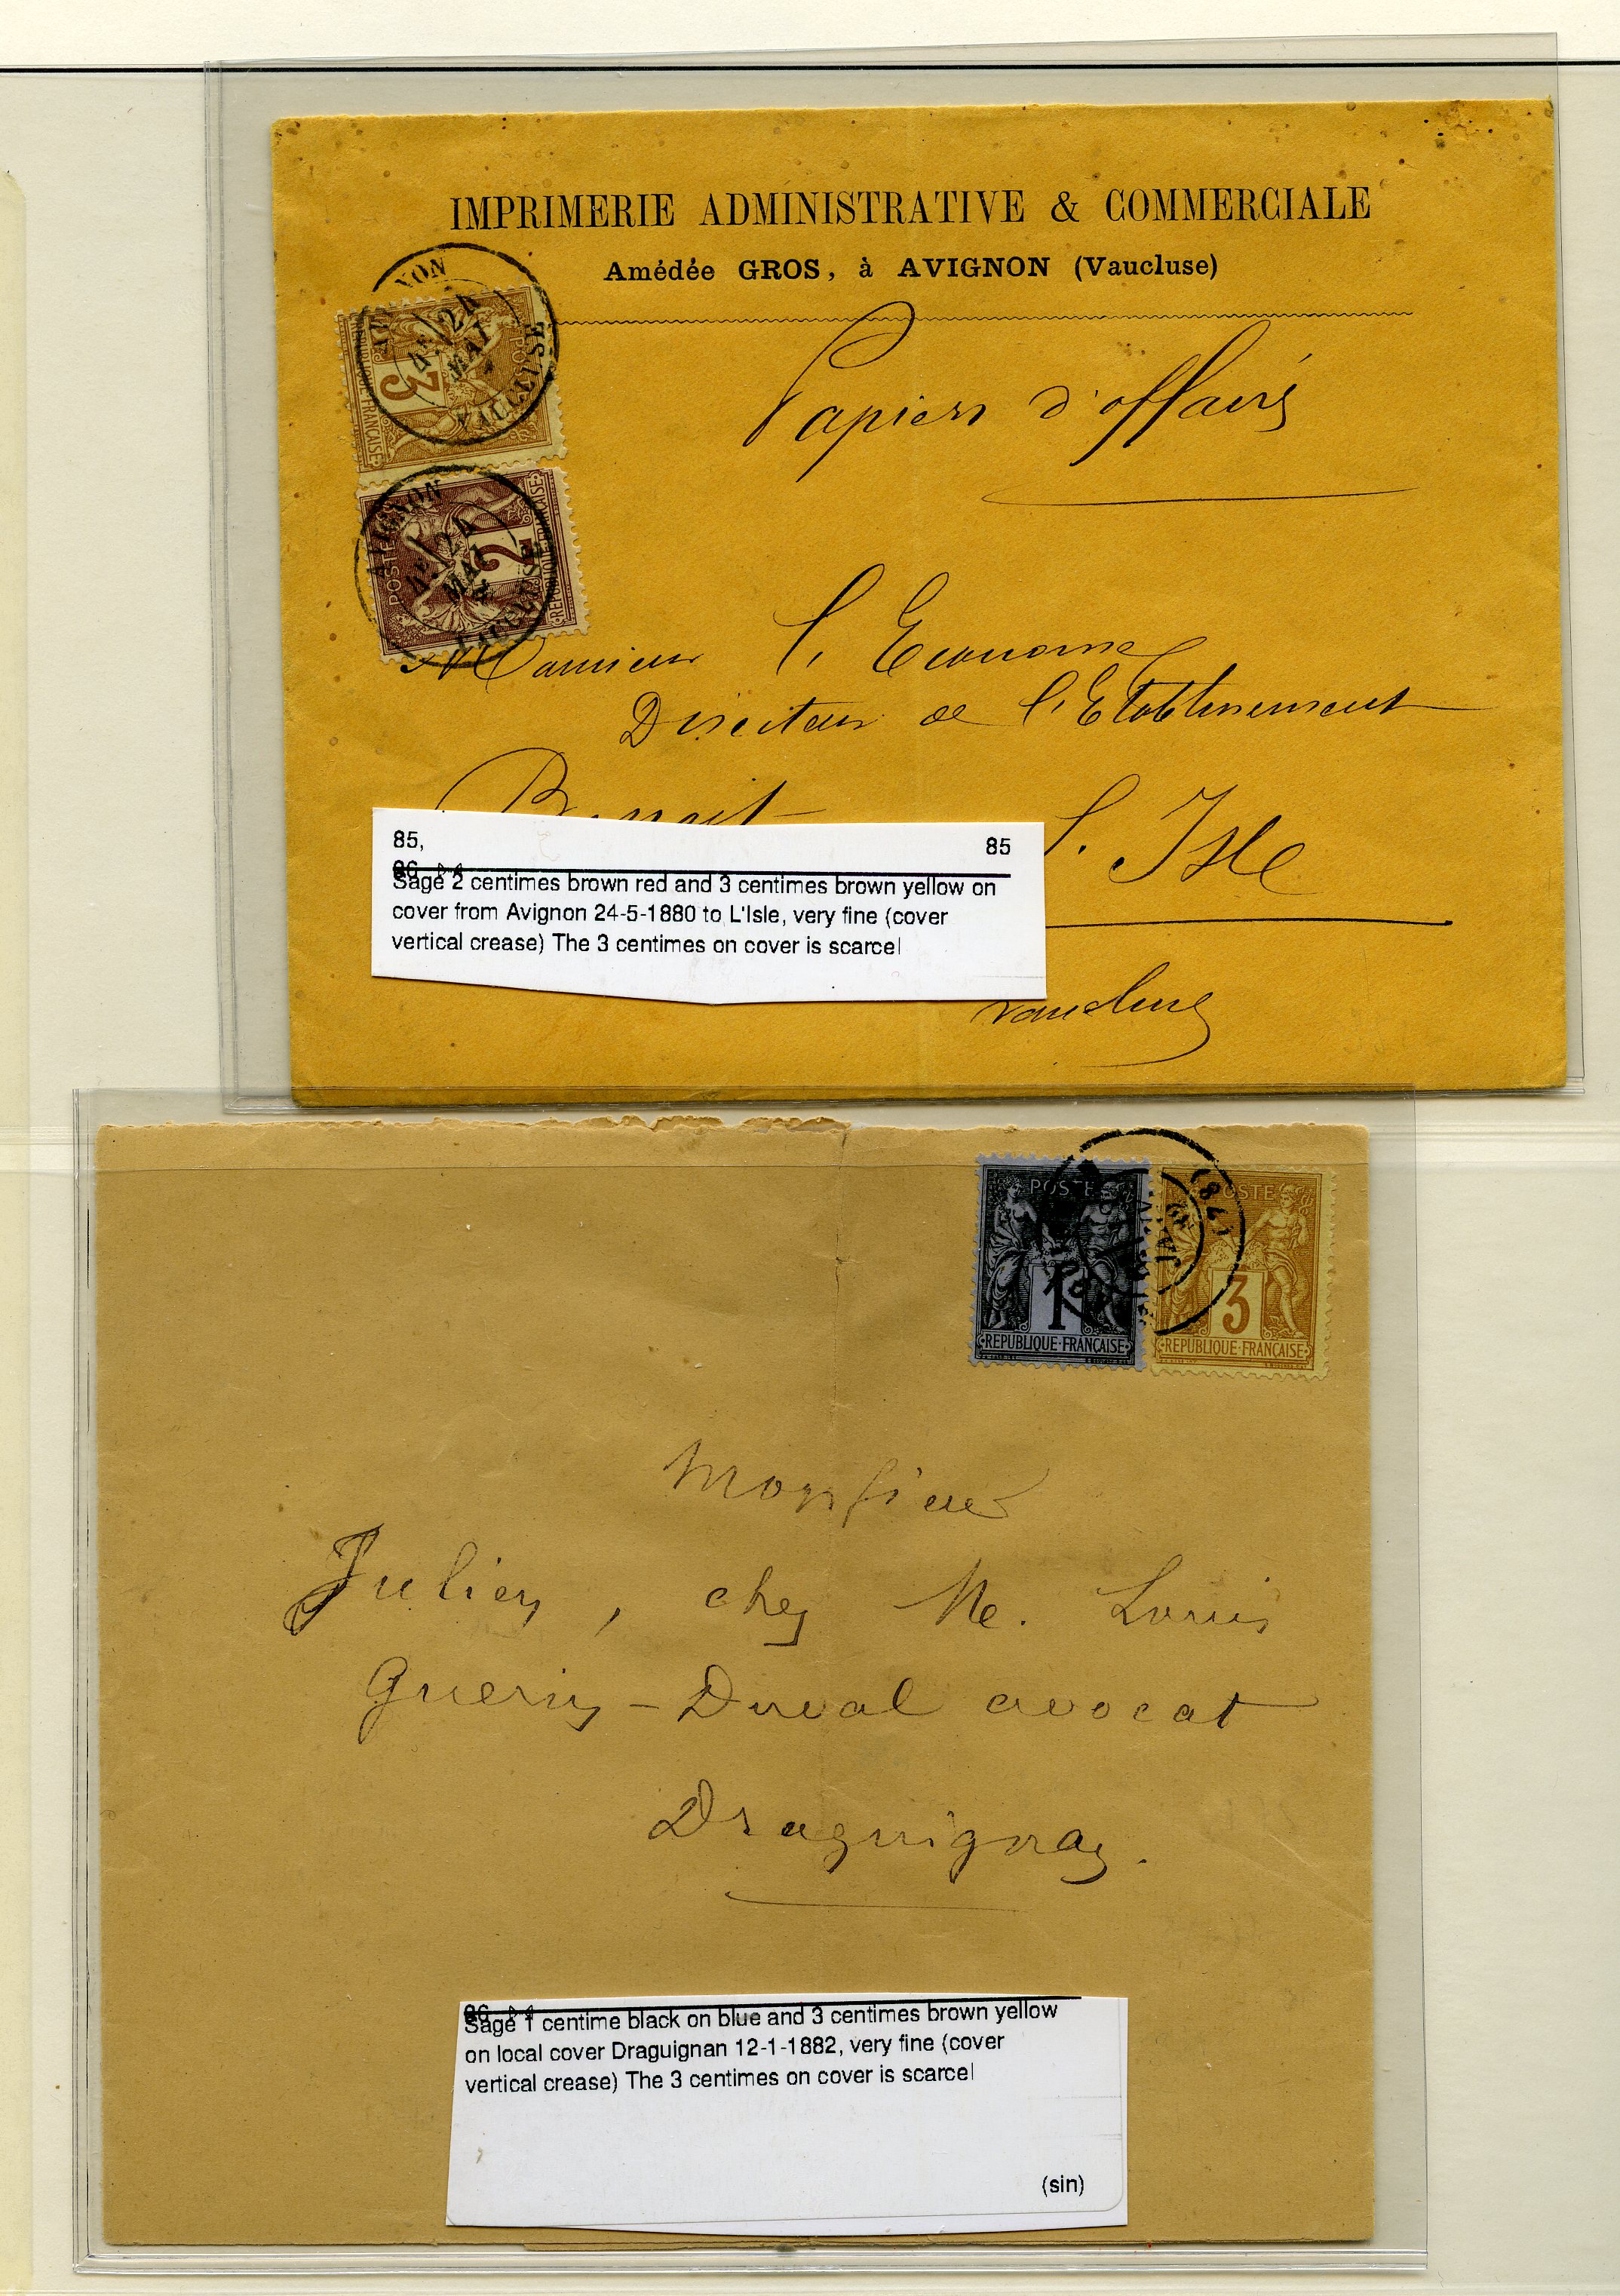 IMPRIMERIE ADMINISTRATIVE & COMMERCIALE
Amédée GROS, à AVIGNON (Vaucluse)
Papiers d'affaires
AVIGNON
24
MAI
VAUCLUSE
3
REPUBLIQUE FRANÇAISE
AVIGNON
24
MAI
POSTE
2
REPUBLIQUE FRANÇAISE
Monsieur L'Econome
Directeur de l'Etablissement
Benoit L'Isle
Vaucluse
85, 85
86
Sage 2 centimes brown red and 3 centimes brown yellow on
cover from Avignon 24-5-1880 to L'Isle, very fine (cover
vertical crease) The 3 centimes on cover is scarce!
POSTE
1
REPUBLIQUE FRANÇAISE
POSTE
3
REPUBLIQUE FRANÇAISE
(78)
Monsieur
Julien, chez Me. Louis
Guerin-Duval avocat
Draguignan.
86
Sage 1 centime black on blue and 3 centimes brown yellow
on local cover Draguignan 12-1-1882, very fine (cover
vertical crease) The 3 centimes on cover is scarce!
(sin)